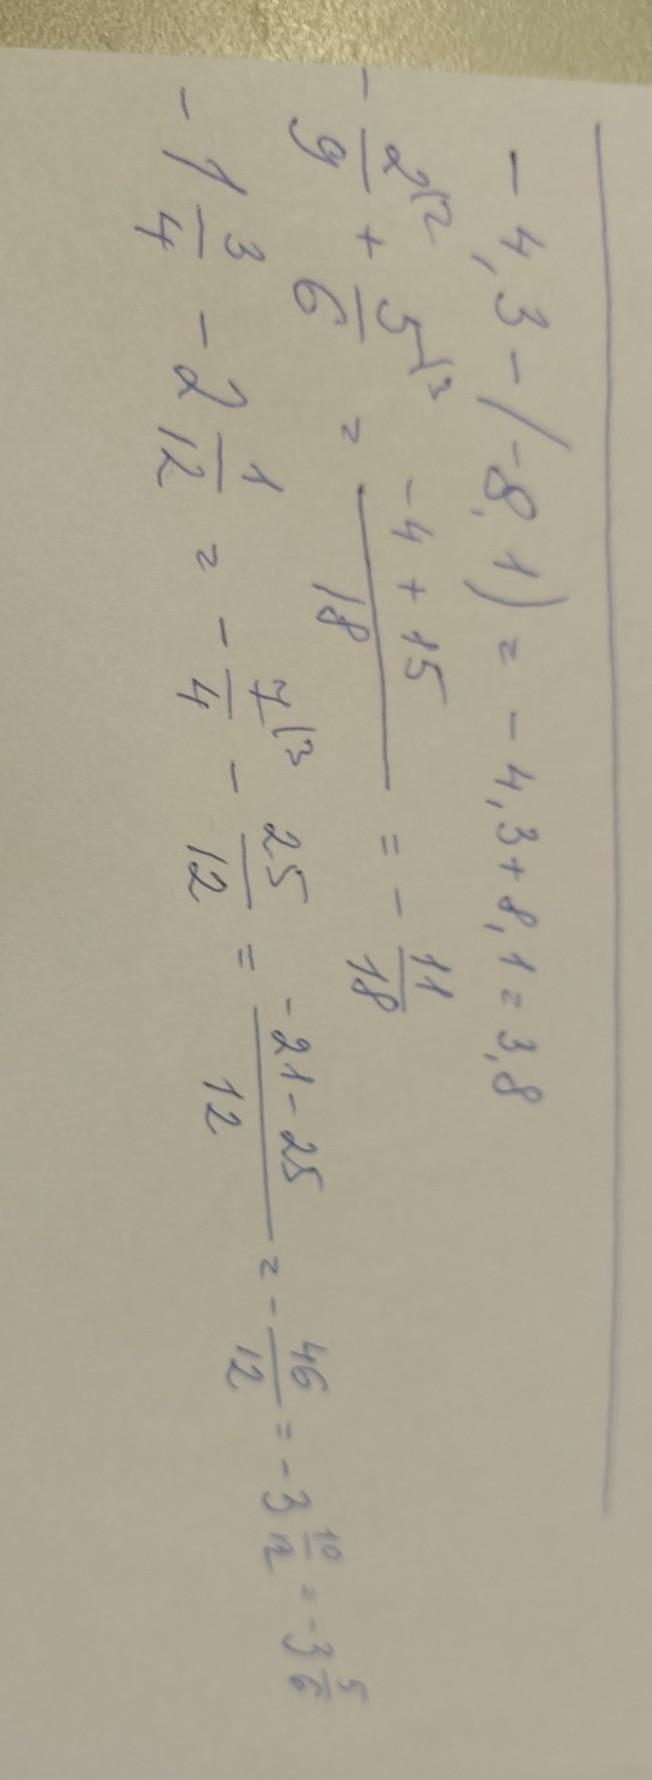 -4,3-(-8,1)=-4,3+8,1=3,8
-2/9 |2 + 5/6 |3 = (-4+15)/18 = -11/18
-1 3/4 - 2 1/12 = -7/4 |3 - 25/12 = (-21-25)/12 = -46/12 = -3 10/12 = -3 5/6